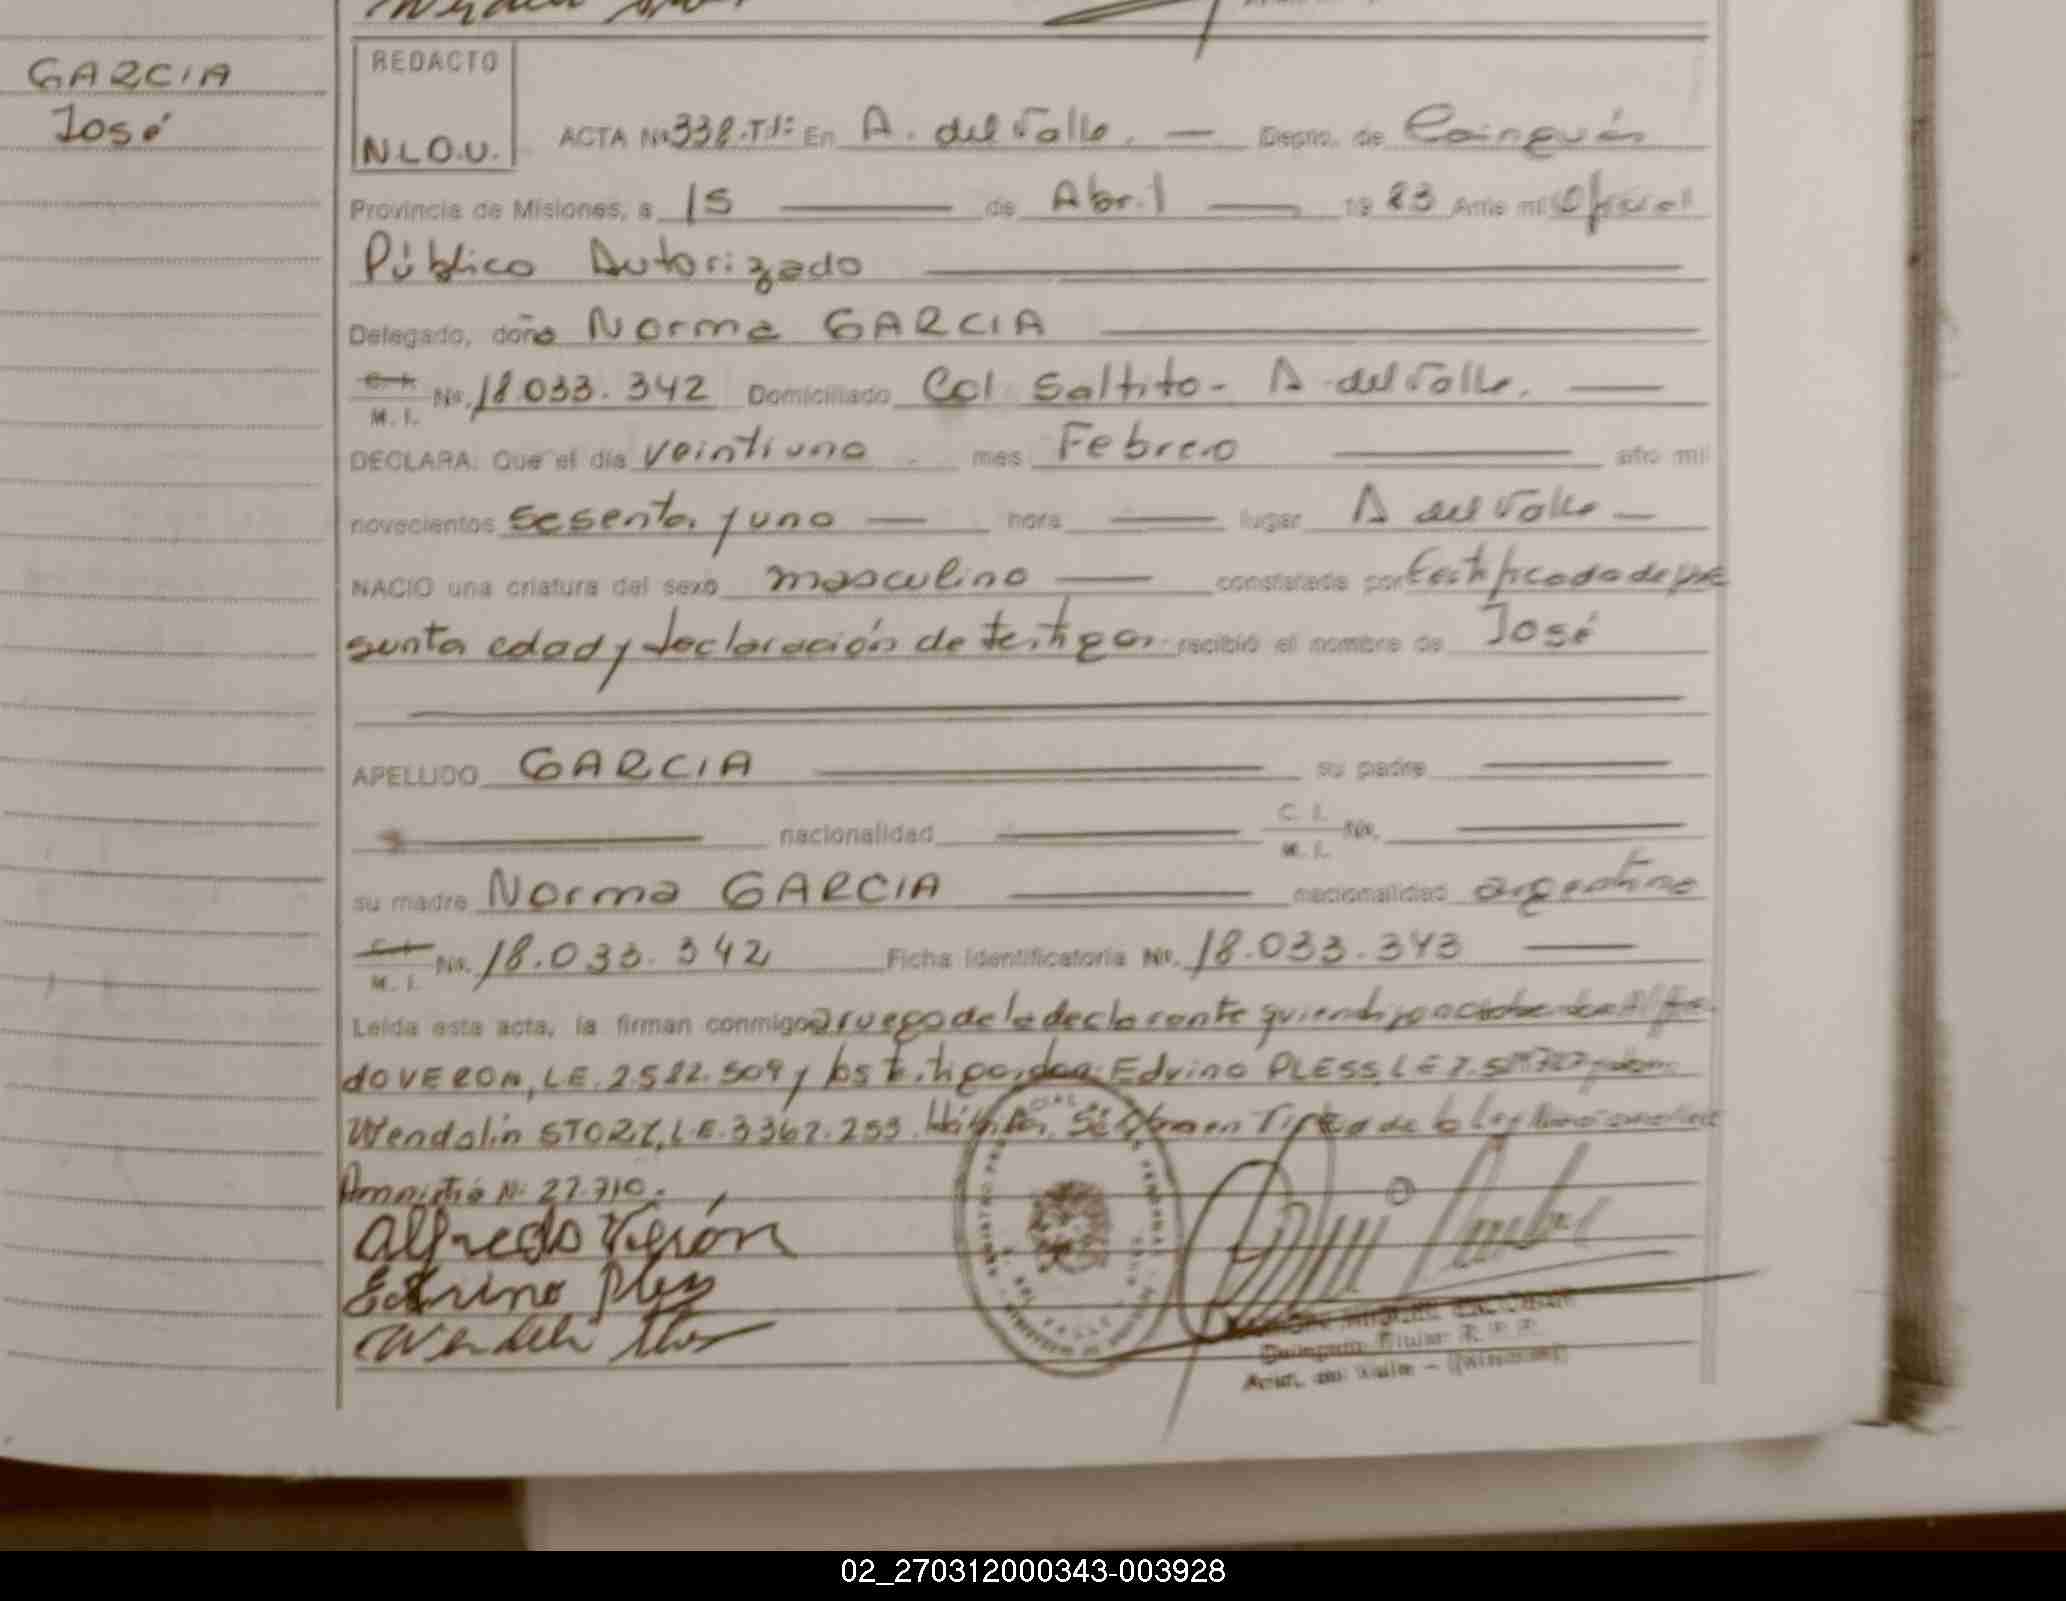 GARCIA
José
REDACTO
N.L.O.U.
ACTA Nº 338.T1: En A. del Valle. — Depto. de Cainguás
Provincia de Misiones, a 15 — de Abril — 1983 Ante mi Oficial
Público Autorizado
Delegado, doña Norma GARCIA
C. I.
M. I. Nº. 18.033.342 Domiciliado Col Saltito - A. del Valle.
DECLARA: Que el día veintiuno mes Febrero año mil
novecientos sesenta y uno — hora — lugar A del Valle —
NACIO una criatura del sexo masculino — constatada por certificado de pre
sunta edad y declaración de testigos recibió el nombre de José
APELLIDO GARCIA su padre
nacionalidad C. I.
M. I. Nº.
su madre Norma GARCIA nacionalidad argentina
C. I.
M. I. Nº. 18.033.342 Ficha Identificatoria Nº. 18.033.343
Leída esta acta, la firman conmigo a ruego de la declarante quien dijo
do VERON, L.E. 2.582.509 y los testigos, don: Edvino PLESS, L.E 7.5
Wendolin STORZ, L.E. 3.367.253. Se de la Ley
Amnistía Nº 22.710.
Alfredo Verón
Edvino Pless
Delegado Titular R. P. P.
Arist. del Valle - (Misiones)
02_270312000343-003928